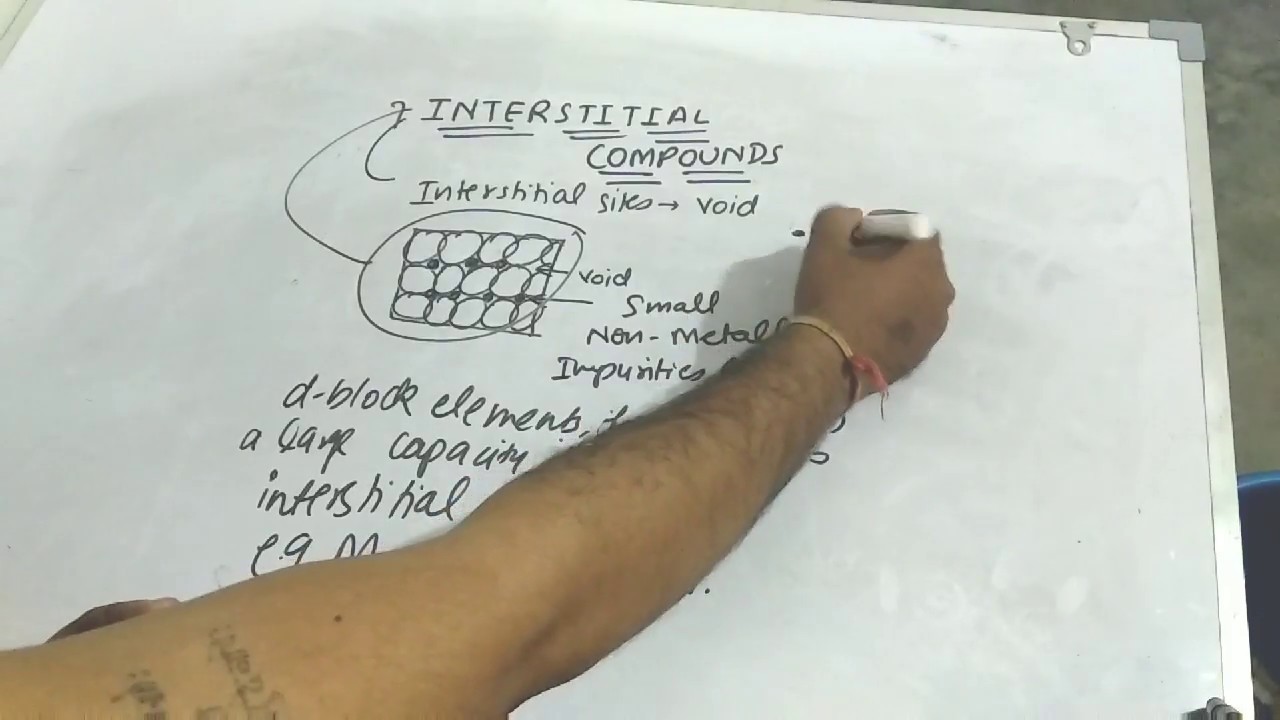 INTERSTITIAL
COMPOUNDS
Interstitial sites → void
void
Small
Non-Metall
Impurities
d-block elements,
a large capacity
interstitial
e.g M